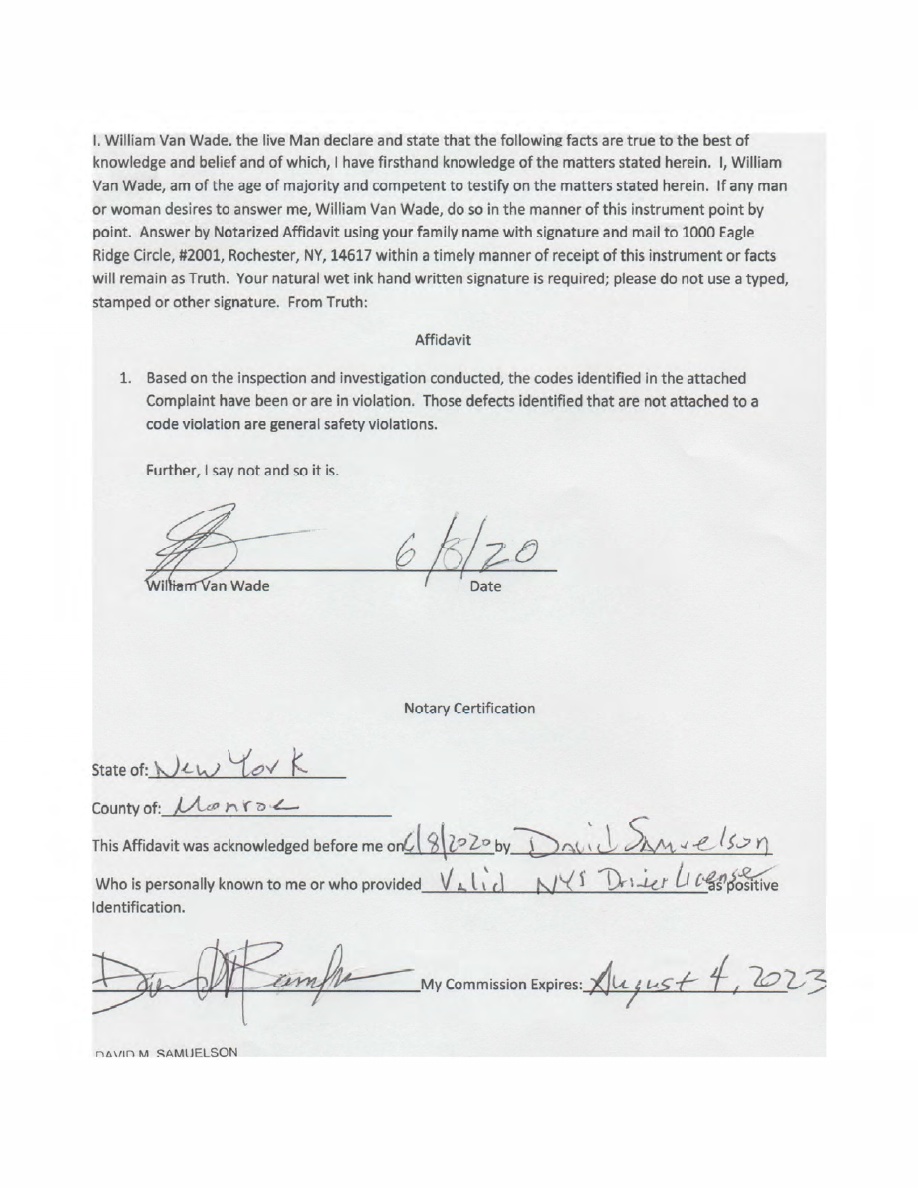 I, William Van Wade, the live Man declare and state that the following facts are true to the best of
knowledge and belief and of which, I have firsthand knowledge of the matters stated herein. I, William
Van Wade, am of the age of majority and competent to testify on the matters stated herein. If any man
or woman desires to answer me, William Van Wade, do so in the manner of this instrument point by
point. Answer by Notarized Affidavit using your family name with signature and mail to 1000 Eagle
Ridge Circle, #2001, Rochester, NY, 14617 within a timely manner of receipt of this instrument or facts
will remain as Truth. Your natural wet ink hand written signature is required; please do not use a typed,
stamped or other signature. From Truth:
Affidavit
1. Based on the inspection and investigation conducted, the codes identified in the attached
Complaint have been or are in violation. Those defects identified that are not attached to a
code violation are general safety violations.
Further, I say not and so it is.
6/8/20
William Van Wade Date
Notary Certification
State of: New York
County of: Monroe
This Affidavit was acknowledged before me on 6/8/2020 by David Samuelson
Who is personally known to me or who provided Valid NYS Driver License as positive
Identification.
My Commission Expires: August 4, 2023
DAVID M. SAMUELSON